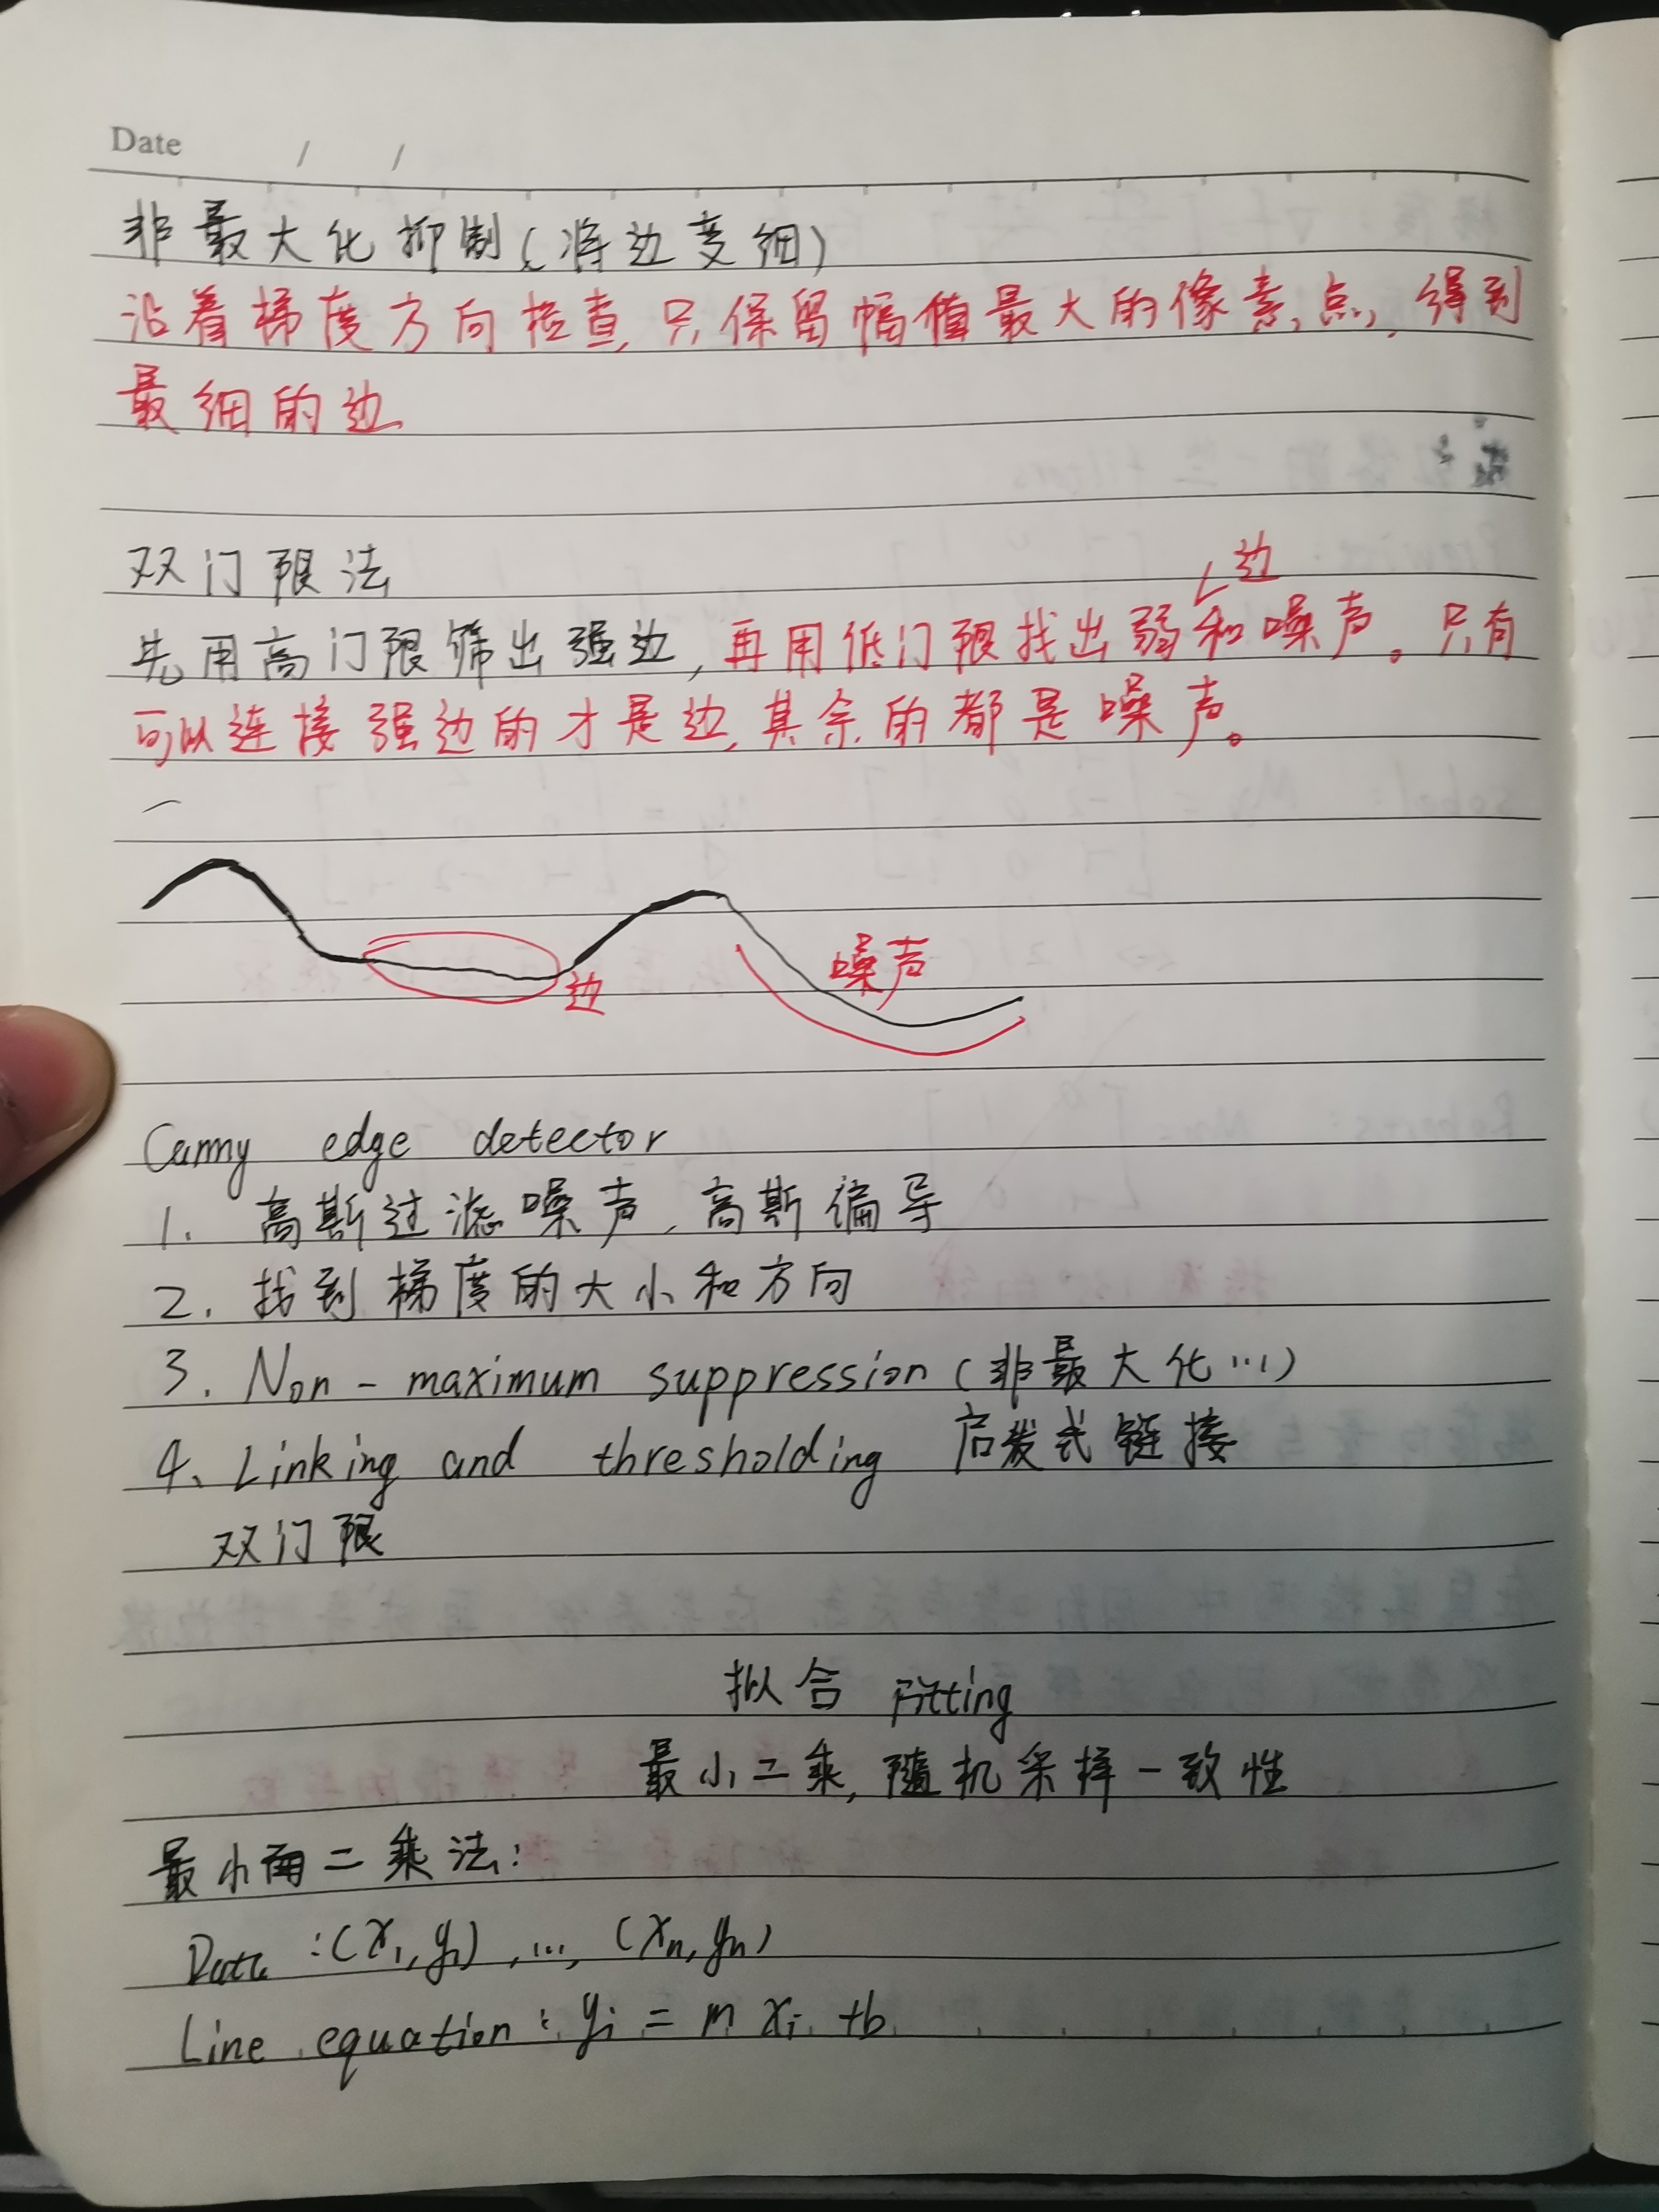 Date / /
非最大化抑制(将边变细)
沿着梯度方向检查,只保留幅值最大的像素点,得到
最细的边
双门限法
先用高门限筛出强边,再用低门限找出弱边和噪声。只有
可以连接强边的才是边,其余的都是噪声。
边
噪声
Canny edge detector
1. 高斯过滤噪声,高斯偏导
2. 找到梯度的大小和方向
3. Non-maximum suppression(非最大化…)
4、Linking and thresholding 启发式链接
双门限
拟合 Fitting
最小二乘,随机采样一致性
最小二乘法:
Data:(x₁,y₁),…,(xₙ,yₙ)
Line equation: yᵢ = m xᵢ +b